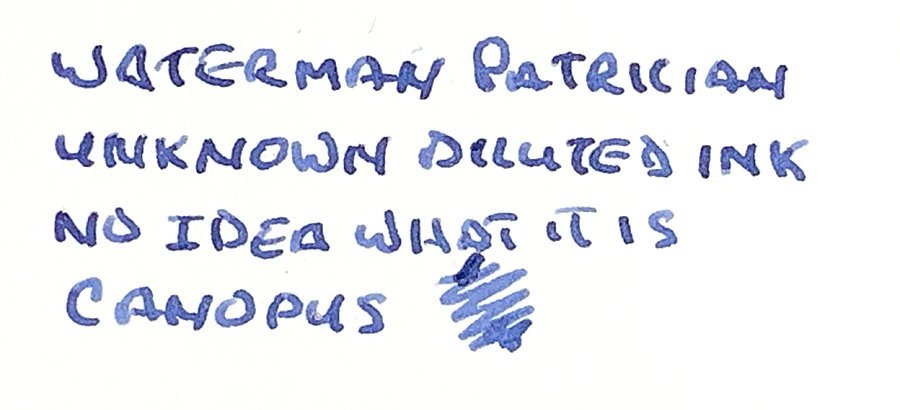 WATERMAN PATRICIAN
UNKNOWN DILUTED INK
NO IDEA WHAT IT IS
CANOPUS